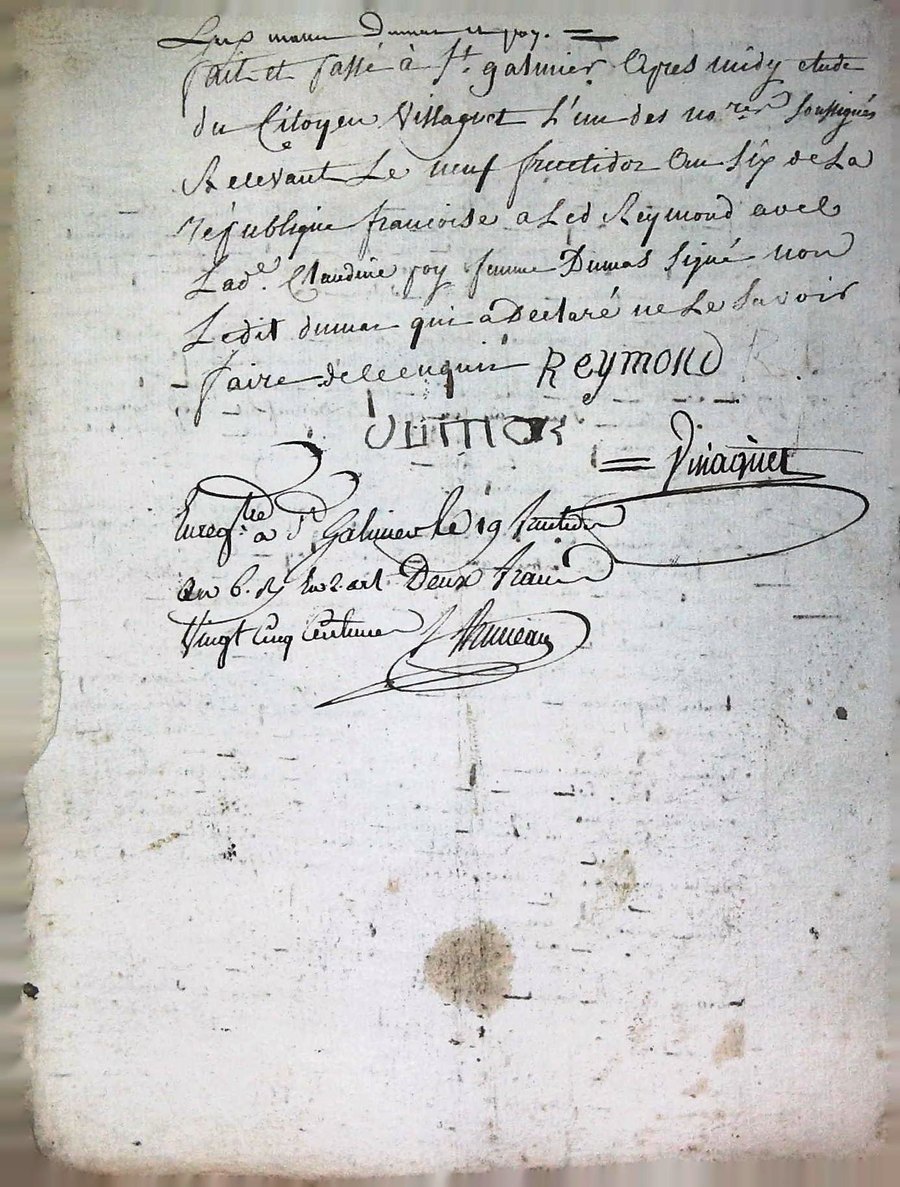 marie Dumas et poy. =
fait et passé à St. galmier apres midy etude
du Citoyen Vinaguet L'un des no.res soussignés
Recevant Le neuf fructidor an six de La
république francoise a Led Reymond avec
Lade. Claudine poy femme Dumas signé non
Ledit dumas qui a Declaré ne Le savoir
faire de ce enquis Reymond
= Vinaguet
Enregtré a St Galmier le 19 fructidor
an 6. Deux francs
Vingt Cinq Centimes